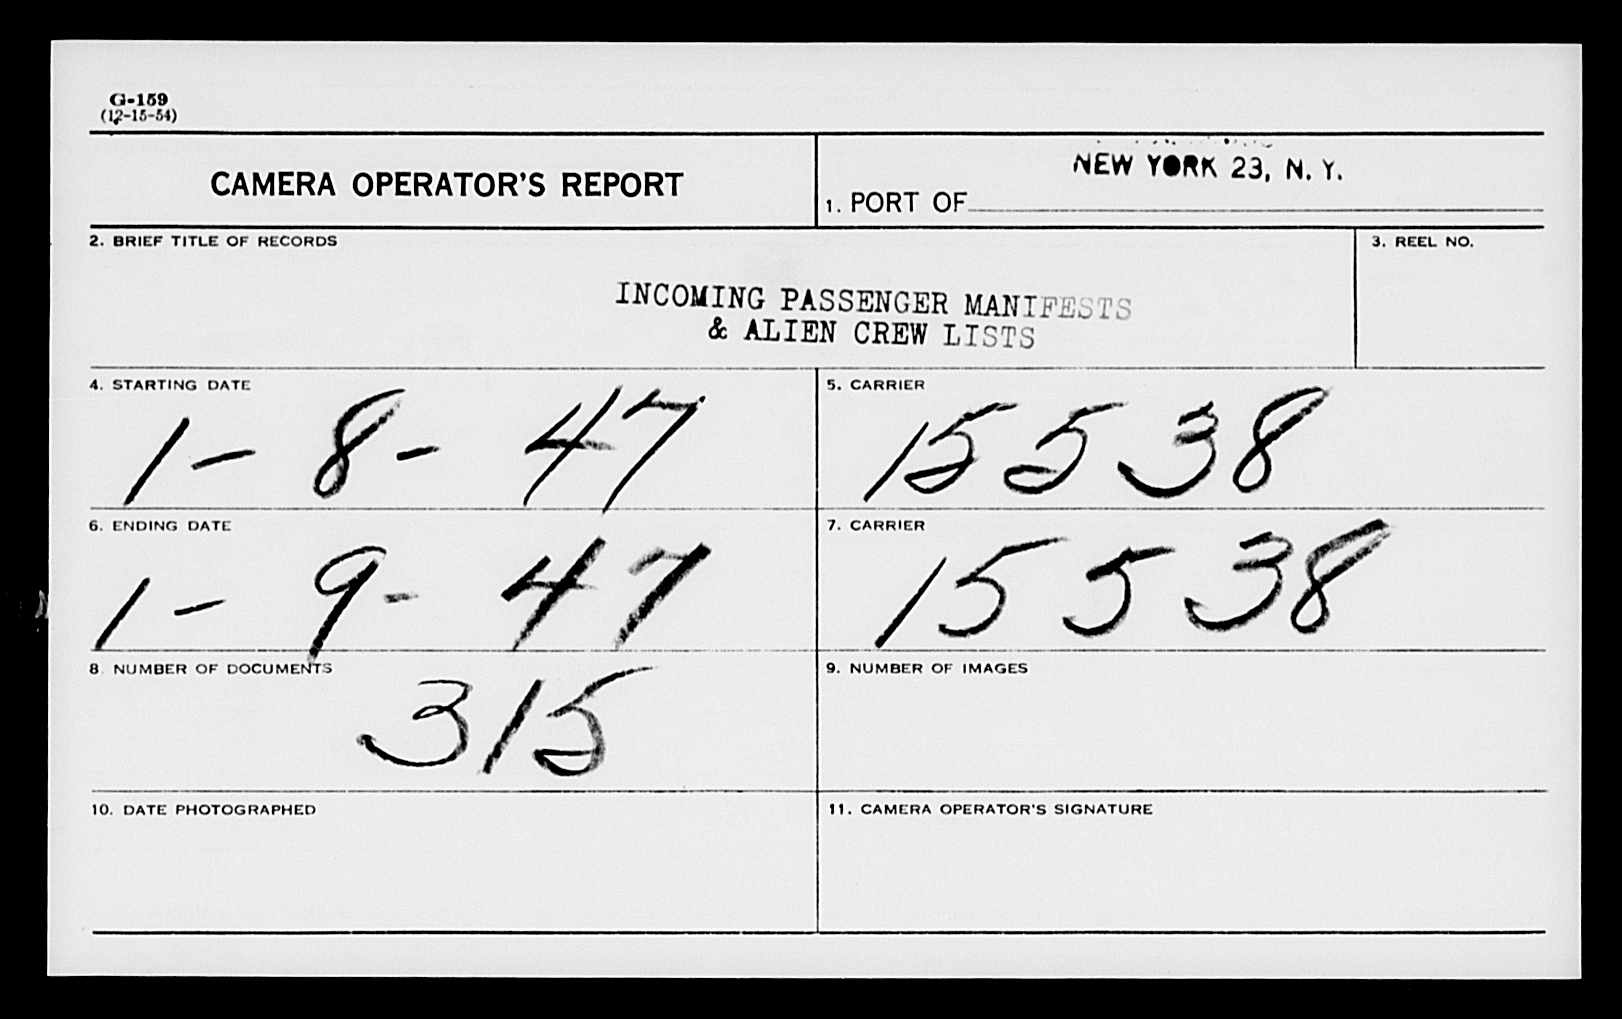 G-159
(12-15-54)
CAMERA OPERATOR'S REPORT
NEW YORK 23, N. Y.
1. PORT OF
2. BRIEF TITLE OF RECORDS
3. REEL NO.
INCOMING PASSENGER MANIFESTS
& ALIEN CREW LISTS
4. STARTING DATE
1-8-47
5. CARRIER
15538
6. ENDING DATE
1-9-47
7. CARRIER
15538
8. NUMBER OF DOCUMENTS
315
9. NUMBER OF IMAGES
10. DATE PHOTOGRAPHED
11. CAMERA OPERATOR'S SIGNATURE